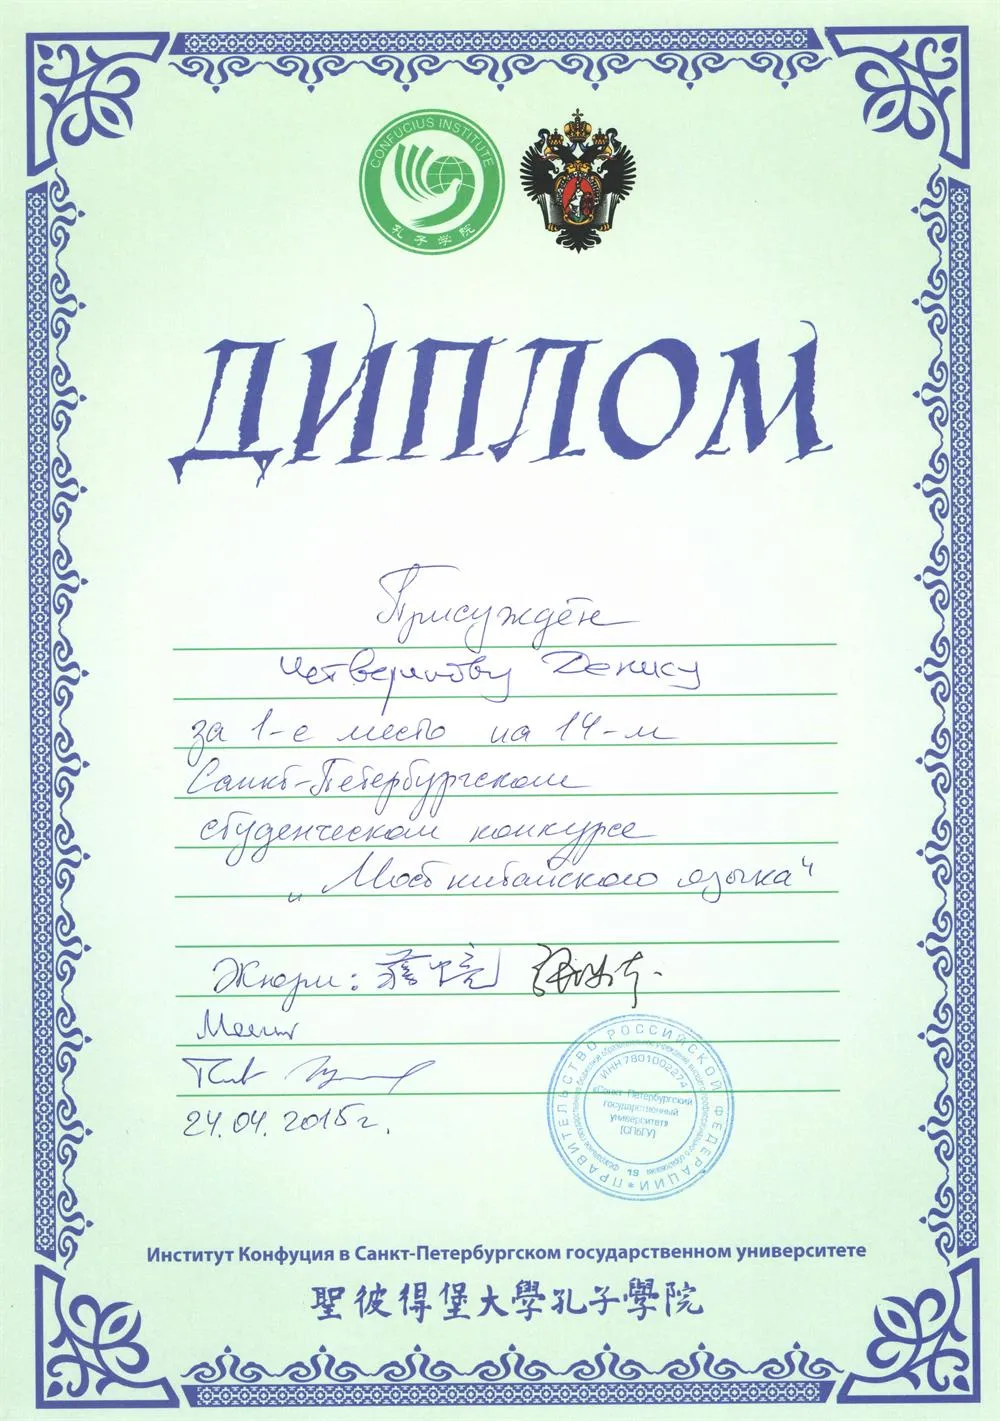 CONFUCIUS INSTITUTE
孔子学院
ДИПЛОМ
Присуждён
Четверикову Денису
за 1-е место на 14-м
Санкт-Петербургском
студенческом конкурсе
„Мост китайского языка“
Жюри:
24.04.2015г.
ПРАВИТЕЛЬСТВО РОССИЙСКОЙ ФЕДЕРАЦИИ
ИНН 7801002274
«Санкт-Петербургский
государственный
университет»
(СПбГУ)
Институт Конфуция в Санкт-Петербургском государственном университете
聖彼得堡大學孔子學院